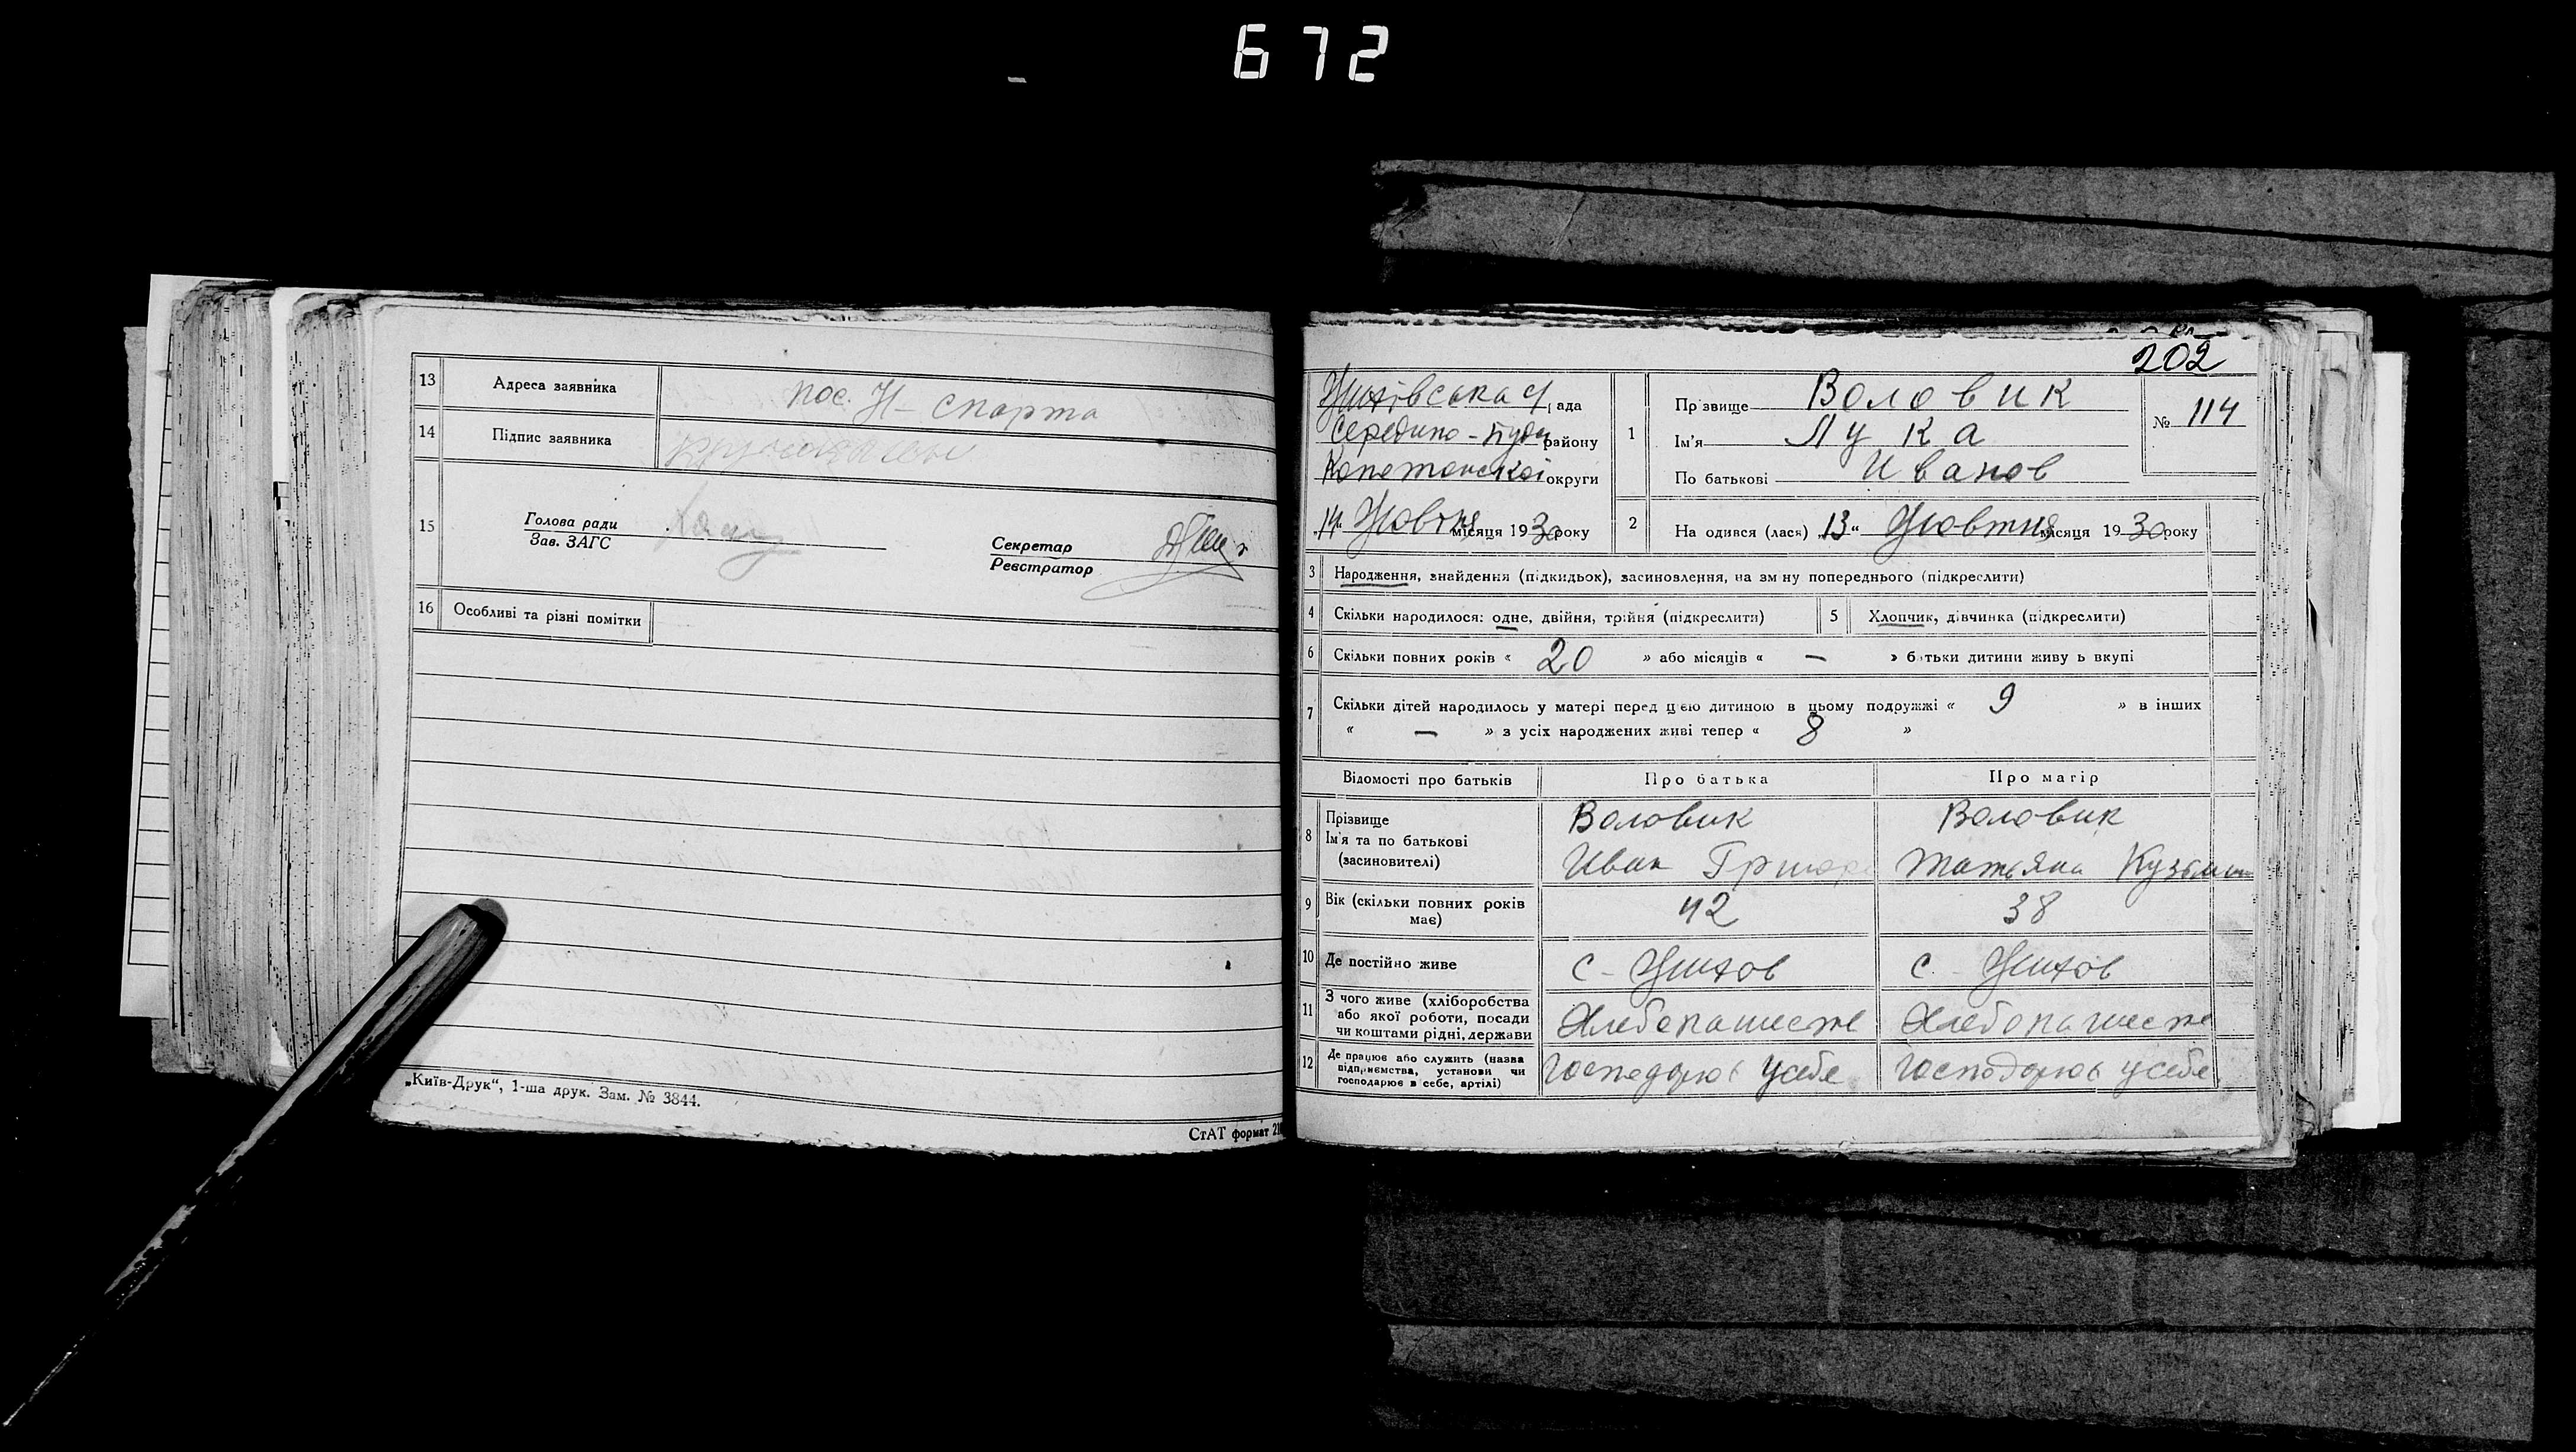 672
13 Адреса заявника пос. Н- спарта
14 Підпис заявника
15 Голова ради
Зав. ЗАГС
Секретар
Реєстратор
16 Особливі та різні помітки
„Київ-Друк“, 1-ша друк. Зам. № 3844.
СтАТ формат
202
рада
Середино-Буди району
округи
14 Жовтня місяця 1930 року
1 Прізвище Воловик
Ім'я Лука
По батькові Иванов
№ 114
2 На одився (лася) „13“ Жовтня місяця 1930 року
3 Народження, знайдення (підкидьок), засиновлення, на зм ну попереднього (підкреслити)
4 Скільки народилося: одне, двійня, трійня (підкреслити)
5 Хлопчик, дівчинка (підкреслити)
6 Скільки повних років « 20 » або місяців « — » батьки дитини живу ь вкупі
7 Скільки дітей народилось у матері перед цією дитиною в цьому подружжі « 9 » в інших
« — » з усіх народжених живі тепер « 8 »
Відомості про батьків Про батька Про матір
8 Прізвище
Ім'я та по батькові
(засиновителі)
Воловик
Иван Григор
Воловик
Татьяна Кузьмин
9 Вік (скільки повних років
має)
42
38
10 Де постійно живе
с - Жихов
с - Жихов
11 З чого живе (хліборобства
або якої роботи, посади
чи коштами рідні, держави
Хлебопашеств
Хлебопашеств
12 Де працює або служить (назва
підприємства, установи чи
господарює в себе, артілі)
Господорює у себе
Господорює у себе